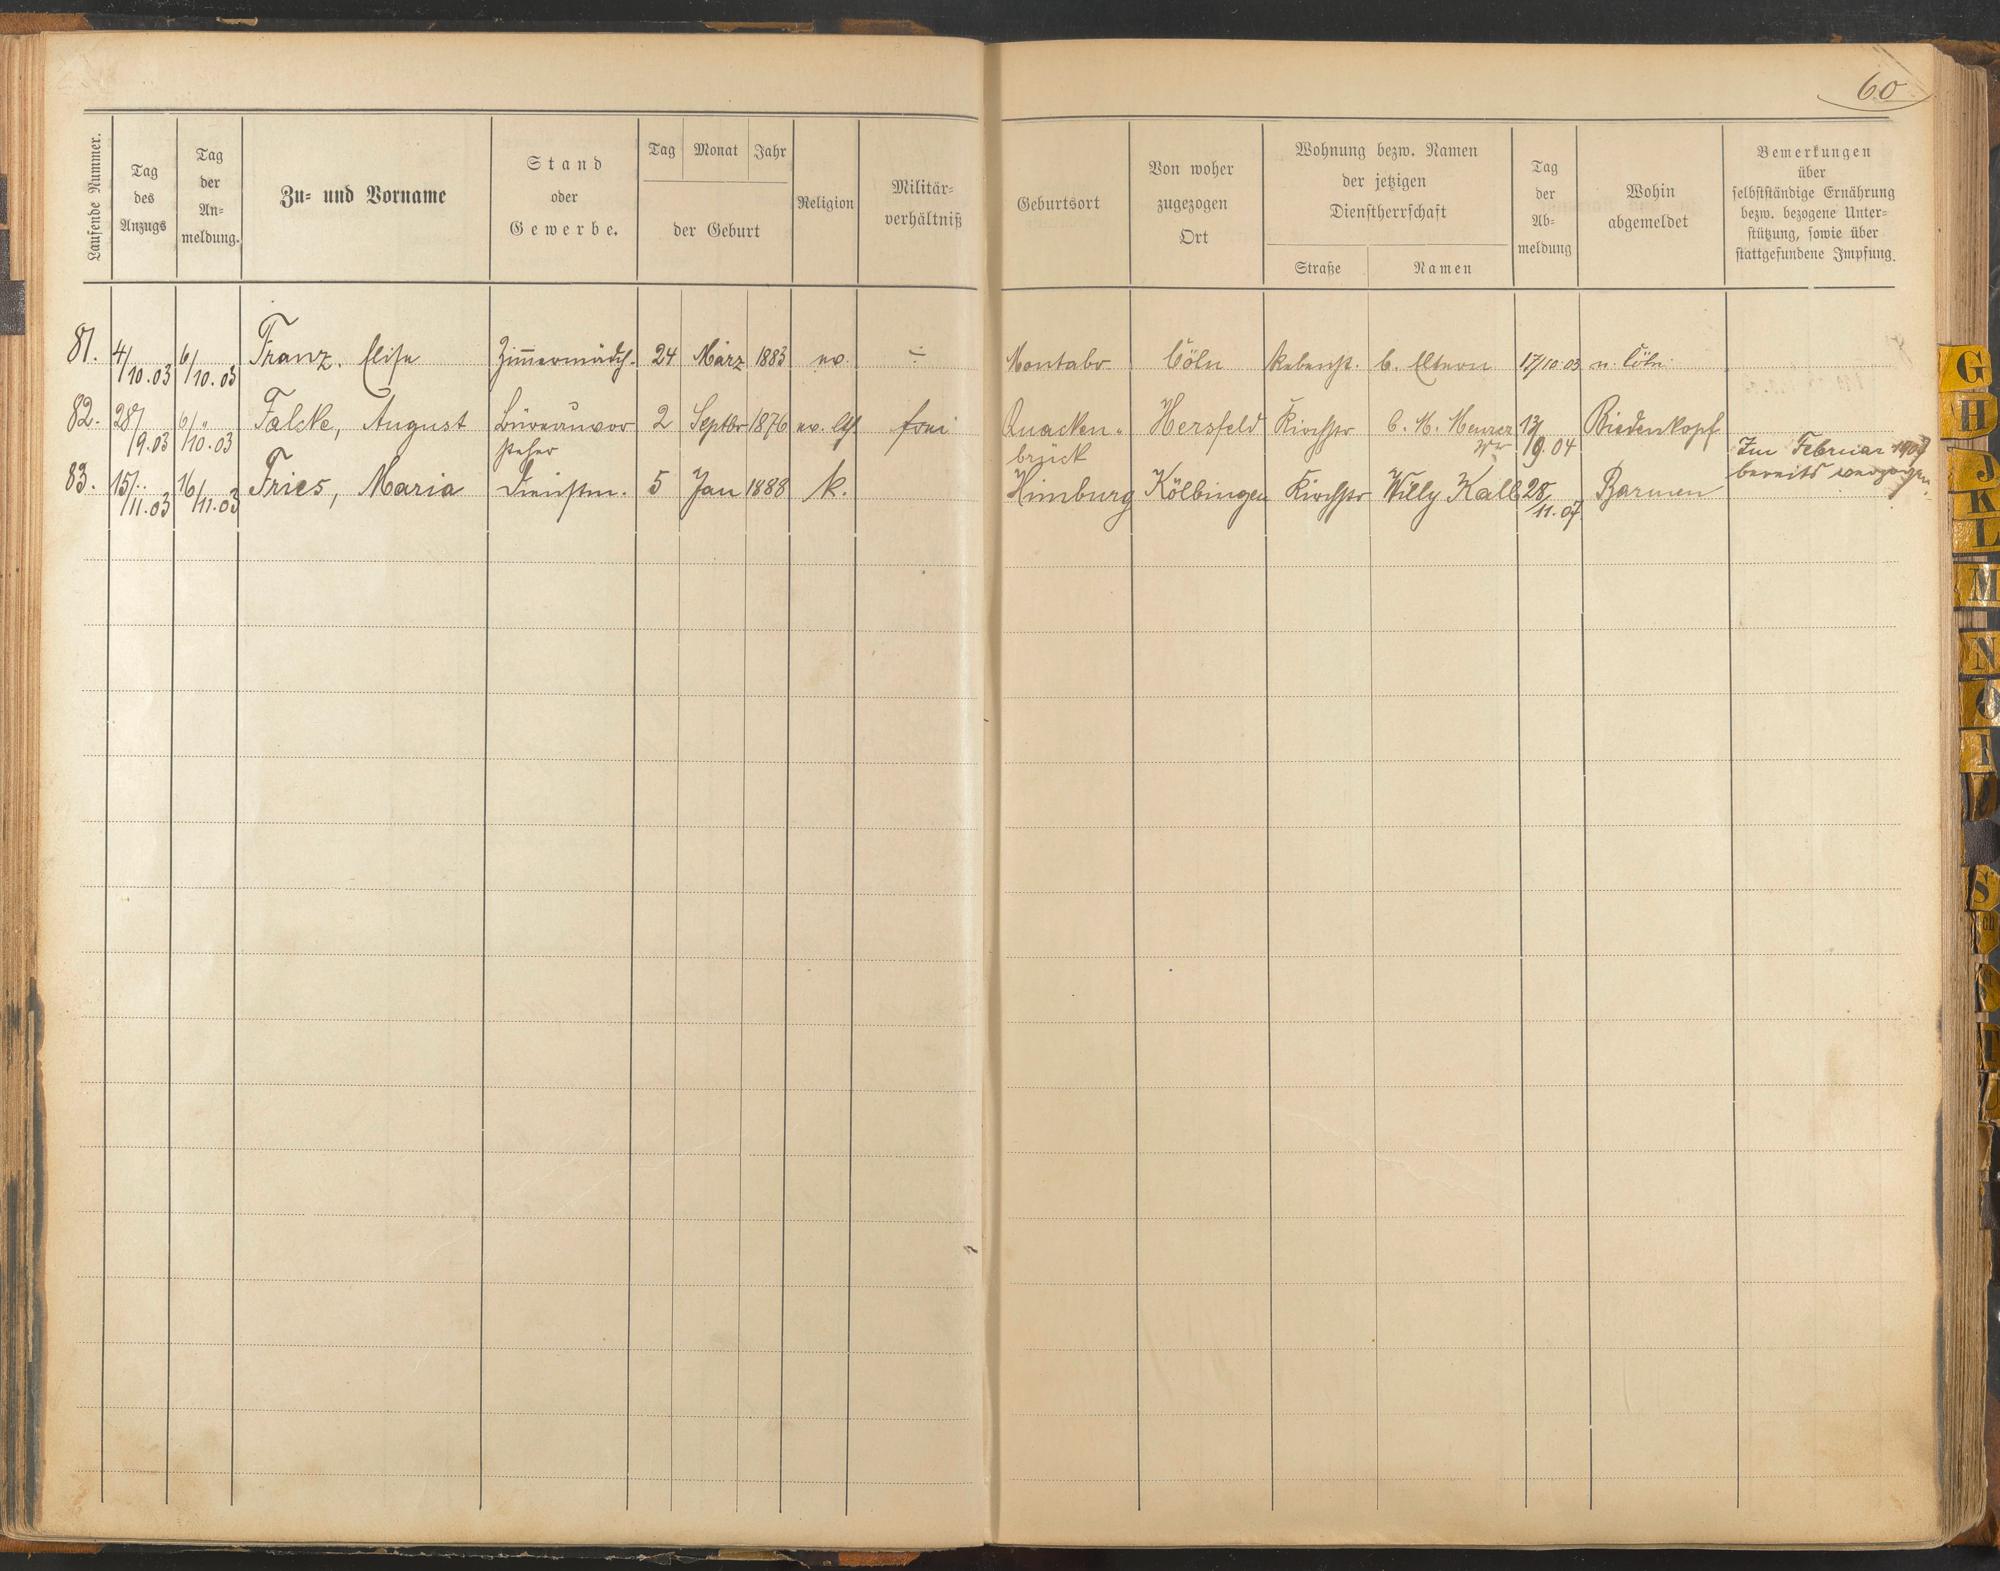 60
Laufende Nummer.
Tag des Anzugs
Tag der An= meldung.
Zu= und Vorname
Stand oder Gewerbe.
Tag Monat Jahr
der Geburt
Religion
Militär= verhältniß
Geburtsort
Von woher zugezogen Ort
Wohnung bezw. Namen
der jetzigen
Dienstherrschaft
Straße Namen
Tag der Ab= meldung
Wohin abgemeldet
Bemerkungen
über
selbstständige Ernährung
bezw. bezogene Unter=
stützung, sowie über
stattgefundene Impfung.
81. 4/10.03 6/10.03 Franz. Elise Zim̅ermädch. 24 März 1883 ev. ÷ Montabr Cöln b. Eltern 17/10.03 n. Cöln
82. 28/9.03 6/10.03 Falcke, August Büreauvor 2 Septbr 1876 ev. frei Quacken= Hersfeld Kirchstr b. M. Meurer 13/9.04 Biedenkopf
steher brück Ww
Im Februar
bereits verzogen.
83. 15/11.03 16/11.03 Fries, Maria Dienstm. 5 Jan 1888 k. Himburg Kölbingen Kirchstr Willy Kalb 28/11.07 Barmen
G
H
J
K
L
M
N
O
S
ch